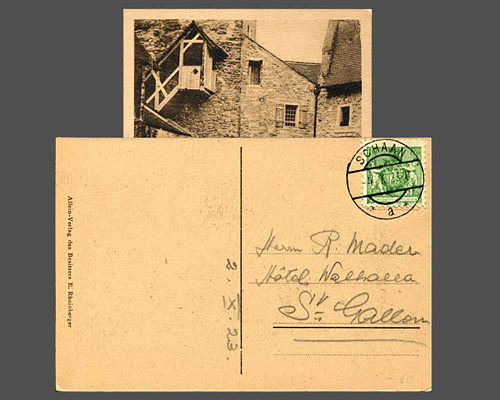 Allein-Verlag des Besitzers E. Rheinberger
2. X. 23.
SCHAAN
a
Herrn R. Mader
Hôtel Walhalla
St Gallen